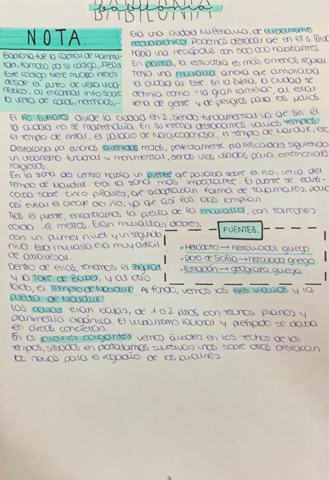 BABILONIA
NOTA.
Babilonia fue la capital de Hammurabi,
famoso por su código,
Este código tiene mucho interés
desde el punto de vista urbanístico,
al encontrar info sobre
la venta de casas, herencias,
Era una ciudad milenaria, de urbanismo
había una necrópolis con 500.000 habitantes.
En planta, la estructura es más o menos regular.
Tenía una muralla anexa que ampliaba
la ciudad al Este. En la Biblia, la ciudad se
definía como "la gran ramera", al estar
llena de gente y de peligros para los judíos.
El Río Éufrates divide la ciudad en 2, siendo fundamental ya que sin él
la ciudad no se mantendría. En su interior destacamos varios templos:
el templo de Entar, el palacio de Nabucodonosor, el templo de Marduk, etc.
Destacaba por anchas avenidas rectas, perfectamente planificadas siguiendo
un urbanismo funcional y monumental, siendo vías usadas para ceremonias
religiosas.
En la zona del centro había un puente que pasaba sobre el río, cerca del
Templo de Marduk. Era la zona más importante. El puente se
sobre cinco pilares, que adoptaban forma de
así evitar el oleaje del río, ya que así las olas rompían.
Tras el puente, encontramos la puerta de la muralla, con torreones
cada 18 metros. Eran murallas dobles,
con un primer nivel y un segundo
nivel. Esta muralla era muy difícil
de atravesar.
FUENTES.
• Heródoto → historiador griego
• Dios de Sicilia → historiador griego
• Estrabón → geógrafo griego.
Dentro de ellas, tenemos el zigurat
y la Torre de Babel, y al otro
lado, el Templo de Marduk. Al fondo, vemos los ejes viarios y la
puerta de Marduk.
Las casas eran bajas, de 1 o 2 pisos con techos planos y
planimetría orgánica. El urbanismo racional y prefijado se daba
en áreas concretas.
En los jardines colgantes vemos árboles en los techos de los
templos, situados en plataformas sucesivas unas sobre otras. Destacan
las norias para el regadío de los jardines.